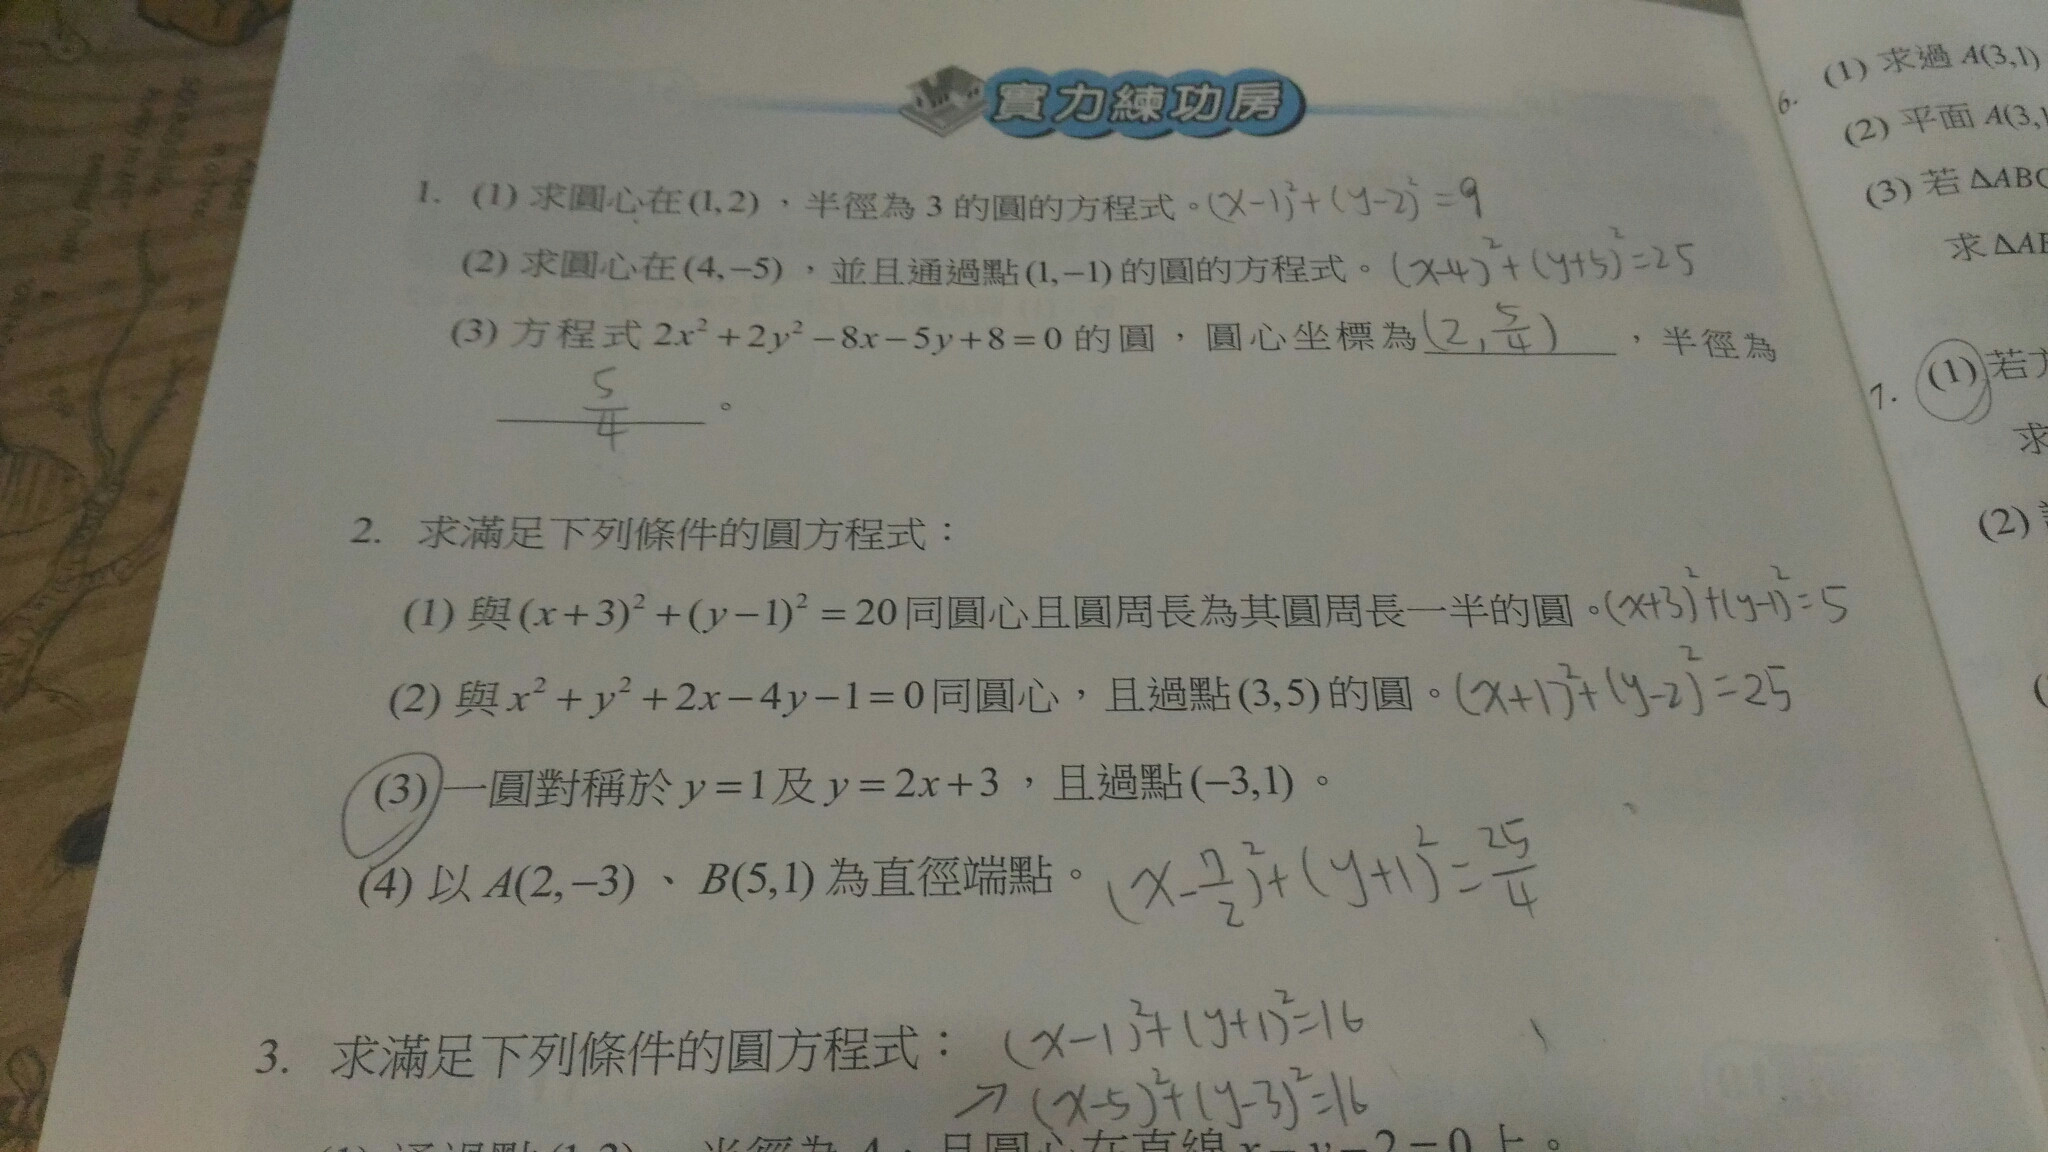 實力練功房
1. (1) 求圓心在(1,2)，半徑為 3 的圓的方程式。(x-1)²+(y-2)²=9
(2) 求圓心在(4,-5)，並且通過點(1,-1)的圓的方程式。(x-4)²+(y+5)²=25
(3) 方程式 2x²+2y²-8x-5y+8=0 的圓，圓心坐標為(2, 5/4)，半徑為
5/4 。
2. 求滿足下列條件的圓方程式：
(1) 與(x+3)²+(y-1)²=20同圓心且圓周長為其圓周長一半的圓。(x+3)²+(y-1)²=5
(2) 與x²+y²+2x-4y-1=0同圓心，且過點(3,5)的圓。(x+1)²+(y-2)²=25
(3) 一圓對稱於 y=1及 y=2x+3，且過點(-3,1)。
(4) 以 A(2,-3)、B(5,1)為直徑端點。(x-7/2)²+(y+1)²=25/4
3. 求滿足下列條件的圓方程式：(x-1)²+(y+1)²=16
↗ (x-5)²+(y-3)²=16
半徑為 4，且圓心在直線 x-y-2=0上。
6. (1) 求過 A(3,1)
(2) 平面 A(3,1
(3) 若 ΔABC
求 ΔAB
7. (1) 若方
求
(2)